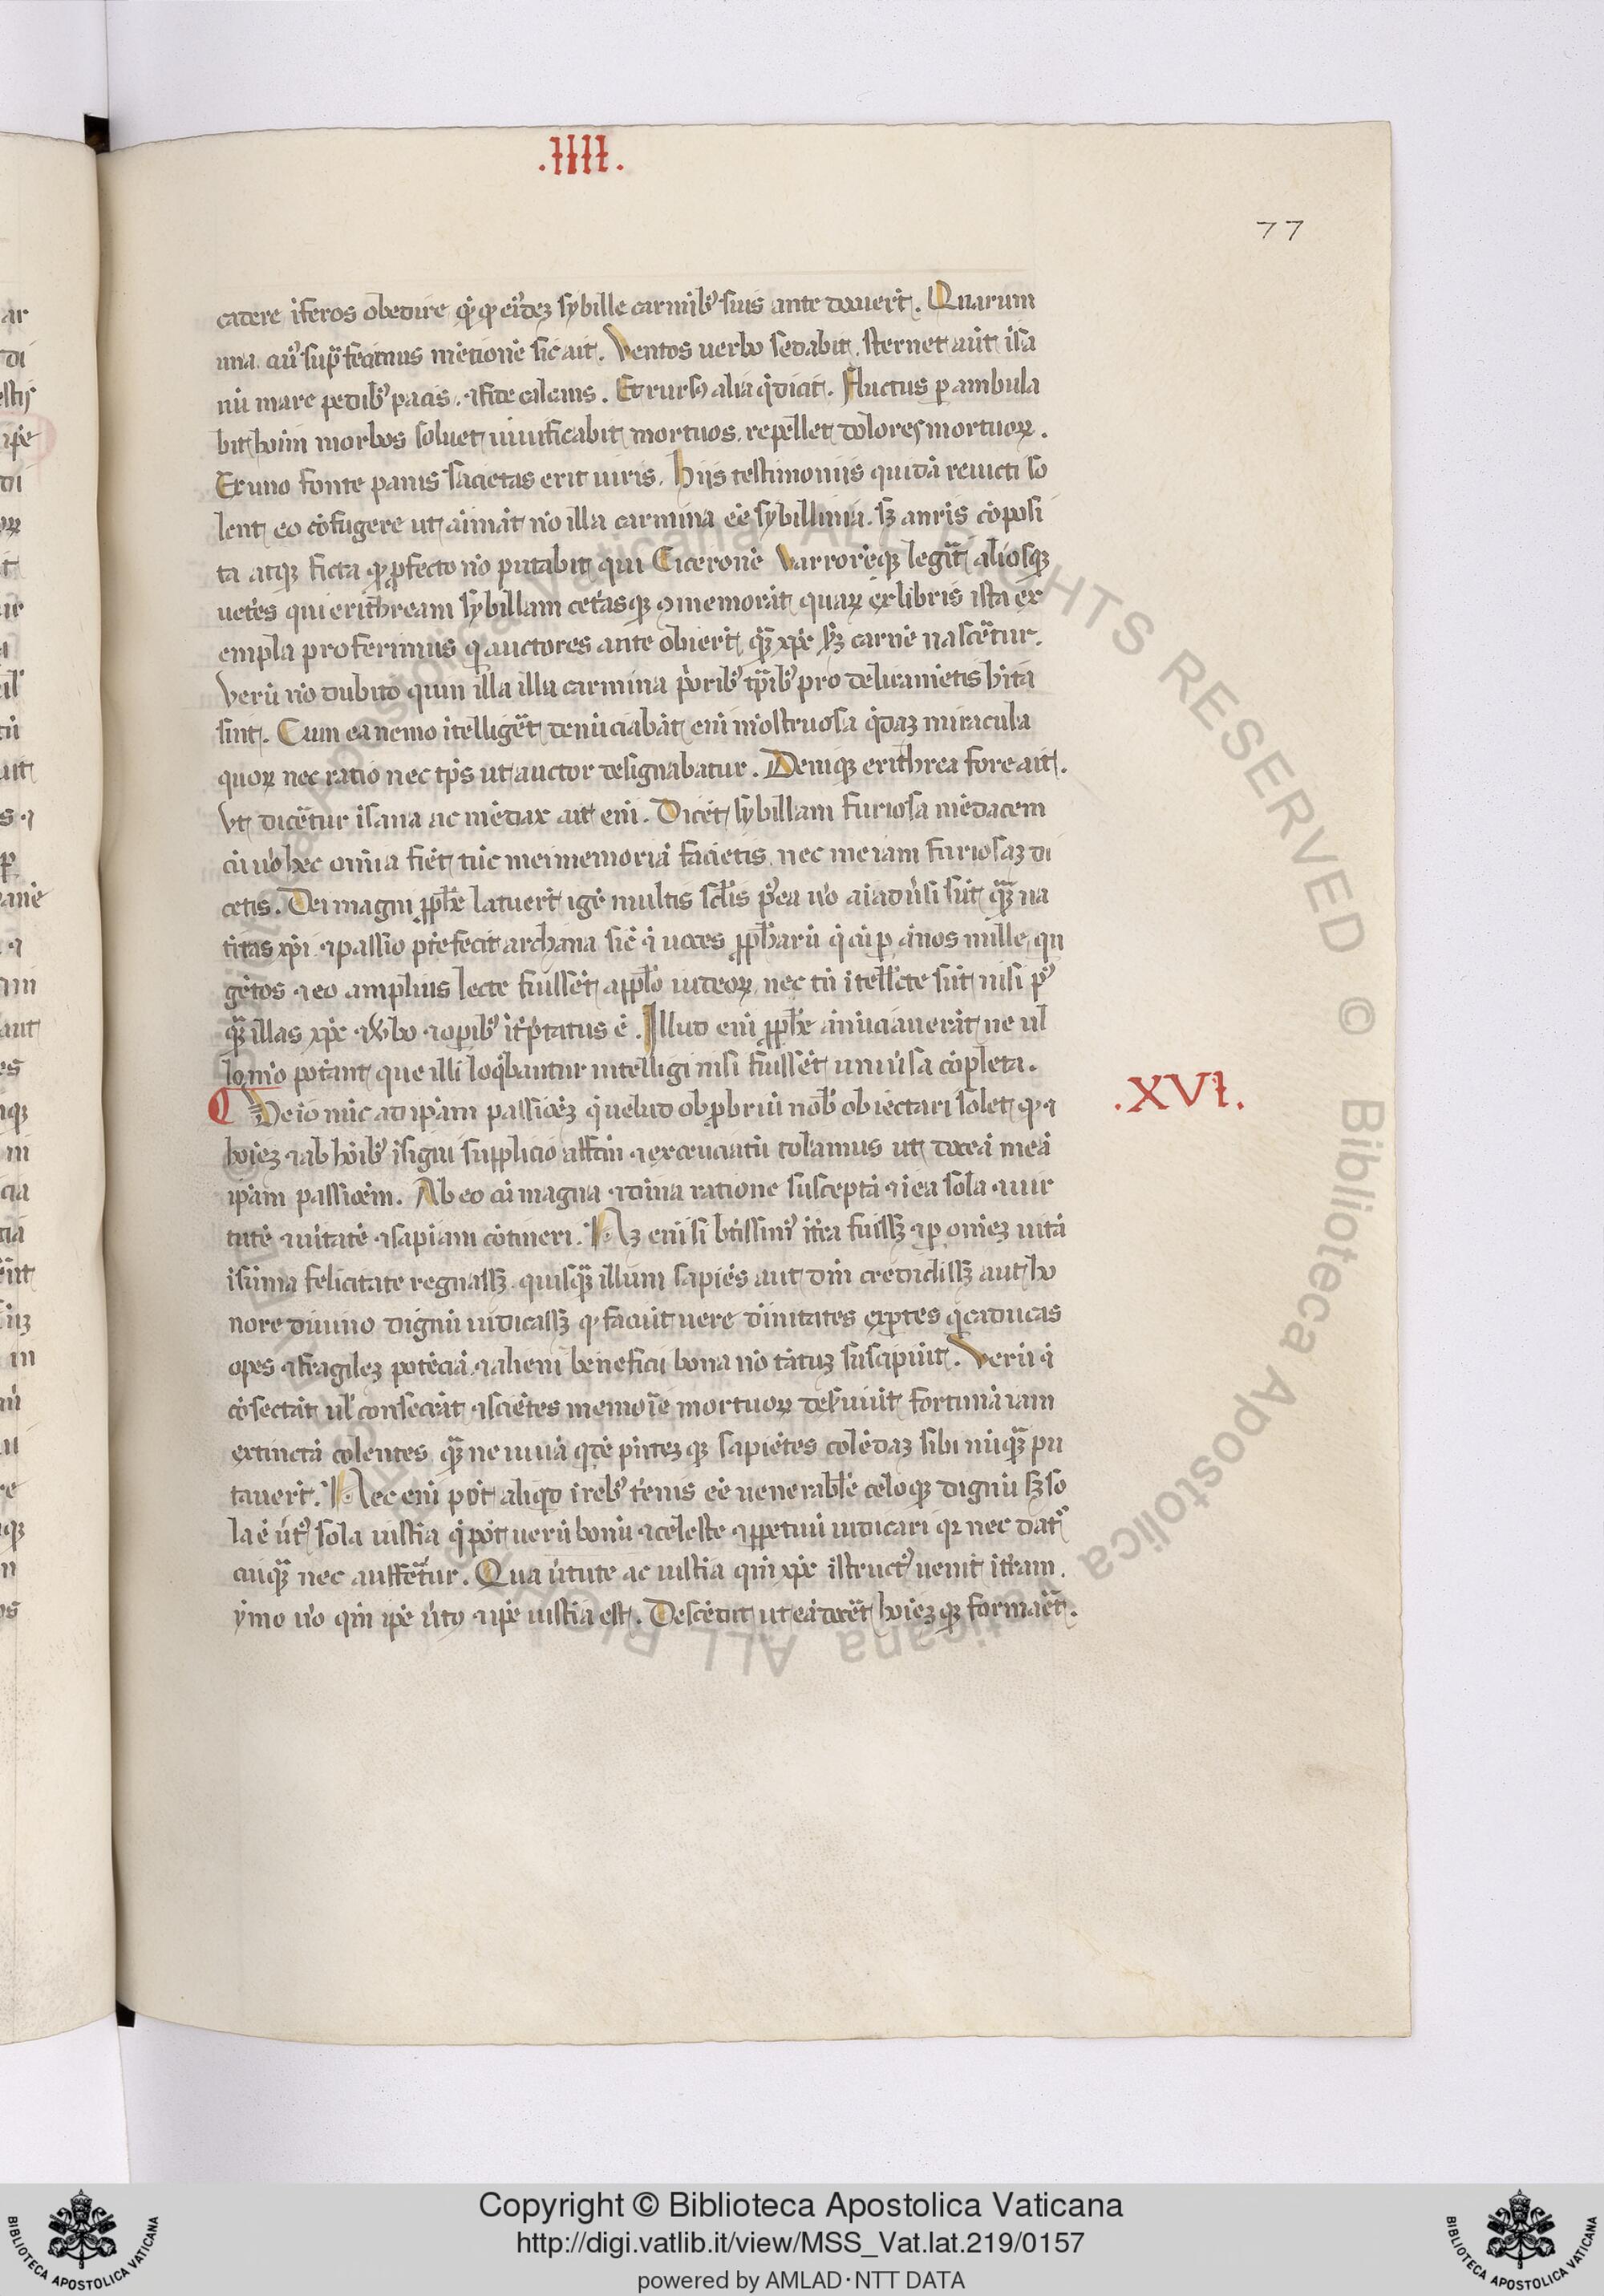 .IIII.
77
cadere īferos obedire qđ q eiusdē sybille carminibꝰ suis ante docuerūt. Quarum
una. cuiꝰ supra fecimus mētionē sic ait. Ventos uerbo sedabit. sternet aūt isa
nū mare pedibꝰ pacis. ⁊ fide calcans. Et rursꝰ alia q̄ dicit. Fluctus p ambula
bit hoim morbos soluet uiuificabit mortuos. repellet dolores mortuoꝝ.
Ex uno fonte panis sacietas erit uiris. Hiis testimoniis quidā reuicti so
lent eo cōfugere ut aiūāt nō illa carmina eē sybillinia. sꝫ a nr̄is cōposi
ta atqꝫ ficta qđ pfecto nō putabit qui Ciceronē Varronēqꝫ legit aliosqꝫ
uetēs qui erithream sybillam cet̄asqꝫ ꝯmemorāt quaꝝ ex libris ista ex
empla proferimus q auctores ante obierūt qꝫ xp̄c sꝫ carnē nascētur.
Verū nō dubito quin illa illa carmina p̄oribꝰ tp̄ribꝰ pro deliramētis hita
sint. Cum ea nemo ītelliget̄ denūciabāt eni mōstruosa q̄daꝫ miracula
quoꝝ nec ratio nec tp̄s ut auctor designabatur. Deniqꝫ erithrea fore ait.
Vt dicētur īsana ac mēdax ait eni. Dicēt sybillam furiosā mēdacem
cū uō hec omīa fiēt tūc mei memoriā facietis. nec me iam furiosaꝫ di
cetis. Dei magni pph̄e latuerūt igī multis sc̄lis p̄ea uō aīaduersi sūt qꝫ na
titas xp̄i ⁊ passio ptefecit archana sic̄ ⁊ uoces pph̄arū q̄ cū p ānos mille qn
gētos ⁊ eo amplius lecte fuissēt a pplō iudeoꝝ nec tn̄ ītell̄cte sūt nisi pꝰ
qꝫ illas xp̄c ⁊ ūbo ⁊ opibꝰ īt̄ptatus ē. Illud eni pph̄e ānūciauerāt ne ul
lo mō pot̄ant que illi loq̄bantur intelligi nisi fuissēt uniūsa cōpleta.
.XVI.
Veio nūc ad ip̄am passiōeꝫ q̄ uelud obpbriū nob̄ obiectari solet qđ ⁊
hoīeꝫ ⁊ ab hoībꝰ īsigni supplicio affc̄m ⁊ excruciatū colamus ut doceā meā
ip̄am passiōem. Ab eo cū magna ⁊ diīna ratione susceptā ⁊ ī ea sola ⁊ uir
tutē ⁊ uītatē ⁊ sapīam cōtineri. Naꝫ eni si btissimꝰ īt̄ra fuissꝫ ⁊ p omēꝫ uitā
ī sūma felicitate regnassꝫ. quisqꝫ illum sapiēs aut dm̄ credidissꝫ aut ho
nore diuino dignū iudicassꝫ qđ faciūt uere diīnitates exptes q̄ caducas
opes ⁊ fragileꝫ potēciā. ⁊ alieni beneficii bona nō tātuꝫ suscipiūt. Verū ⁊
cōsectāt ul̄ consecrāt ⁊ sciētes memoīe mortuoꝝ deseruiūt fortunā iam
extinctā colentes qꝫ ne uiuā qdē p̄ntēꝫqꝫ sapiētes colēdaꝫ sibi nūqꝫ pu
tauerūt. Nec eni pōt aliqd ī rebꝰ t̄renis eē uenerab̄le celoqꝫ dignū sꝫ so
la ē ūtꝰ sola iustīa q̄ pōt uerū bonū ⁊ celeste ⁊ ppetuū iudicari qꝛ nec datꝰ
cuiqꝫ nec auffert̄ur. Qua ūtute ac iustīa qm̄ xp̄c īstructꝰ uenit īt̄ram.
ymo uō qm̄ ip̄e ūto ⁊ ip̄e iustīa est. Descēdit ut eā docēt hoīeꝫqꝫ formaēt.
Copyright © Biblioteca Apostolica Vaticana
http://digi.vatlib.it/view/MSS_Vat.lat.219/0157
powered by AMLAD·NTT DATA